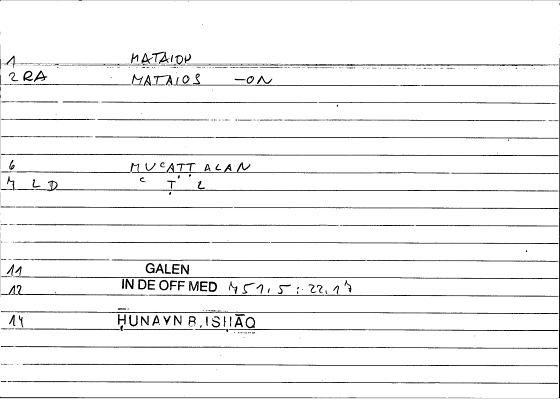 1 MATAION
2 RA MATAIOS -ON
6 MUᶜAṬṬALAN
7 LD ᶜ Ṭ L
11 GALEN
12 IN DE OFF MED 751,5 : 22,17
14 ḤUNAYN B. ISḤĀQ